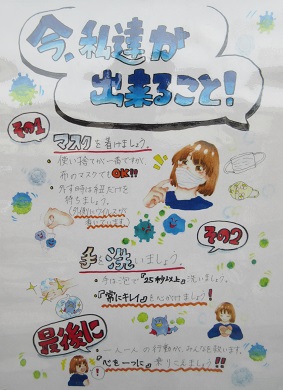 今、私達が
出来ること！
その1
マスクを着けましょう。
・使い捨てが一番ですが、
布のマスクでもOK!!
・外す時は紐だけを
持ちましょう。
(外側にウイルスが
着いています)
その2
手を洗いましょう。
・手は泡で『25秒以上』洗いましょう。
・『常にキレイ』を心がけましょう！
最後に
・一人一人の行動が、みんなを救います。
・『心を一つに』乗りこえましょう!!